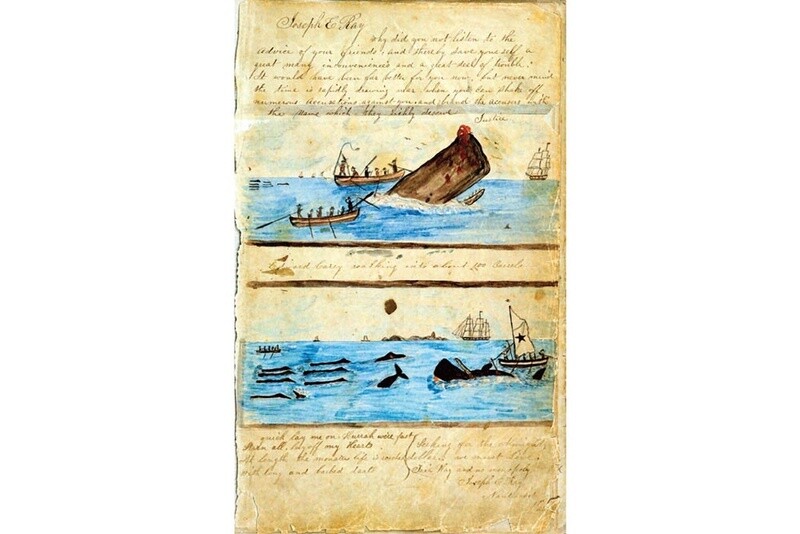 Joseph E. Ray
Why did you not listen to the
advice of your friends, and thereby save yourself a
great many inconveniences and a great deal of trouble.
It would have been far better for you now, but never mind
the time is rapidly drawing near when you can shake off
numerous accusations against you and brand the accusers with
the name which they richly deserve
Justice
Edward Carey walking into about 100 Barrels
quick lay me on. Hurrah we're fast
all, lay off my Hearts
At length the monsters life is
With long and barbed darts
for the
dollars we must have
and us
Joseph E. Ray
Nantucket